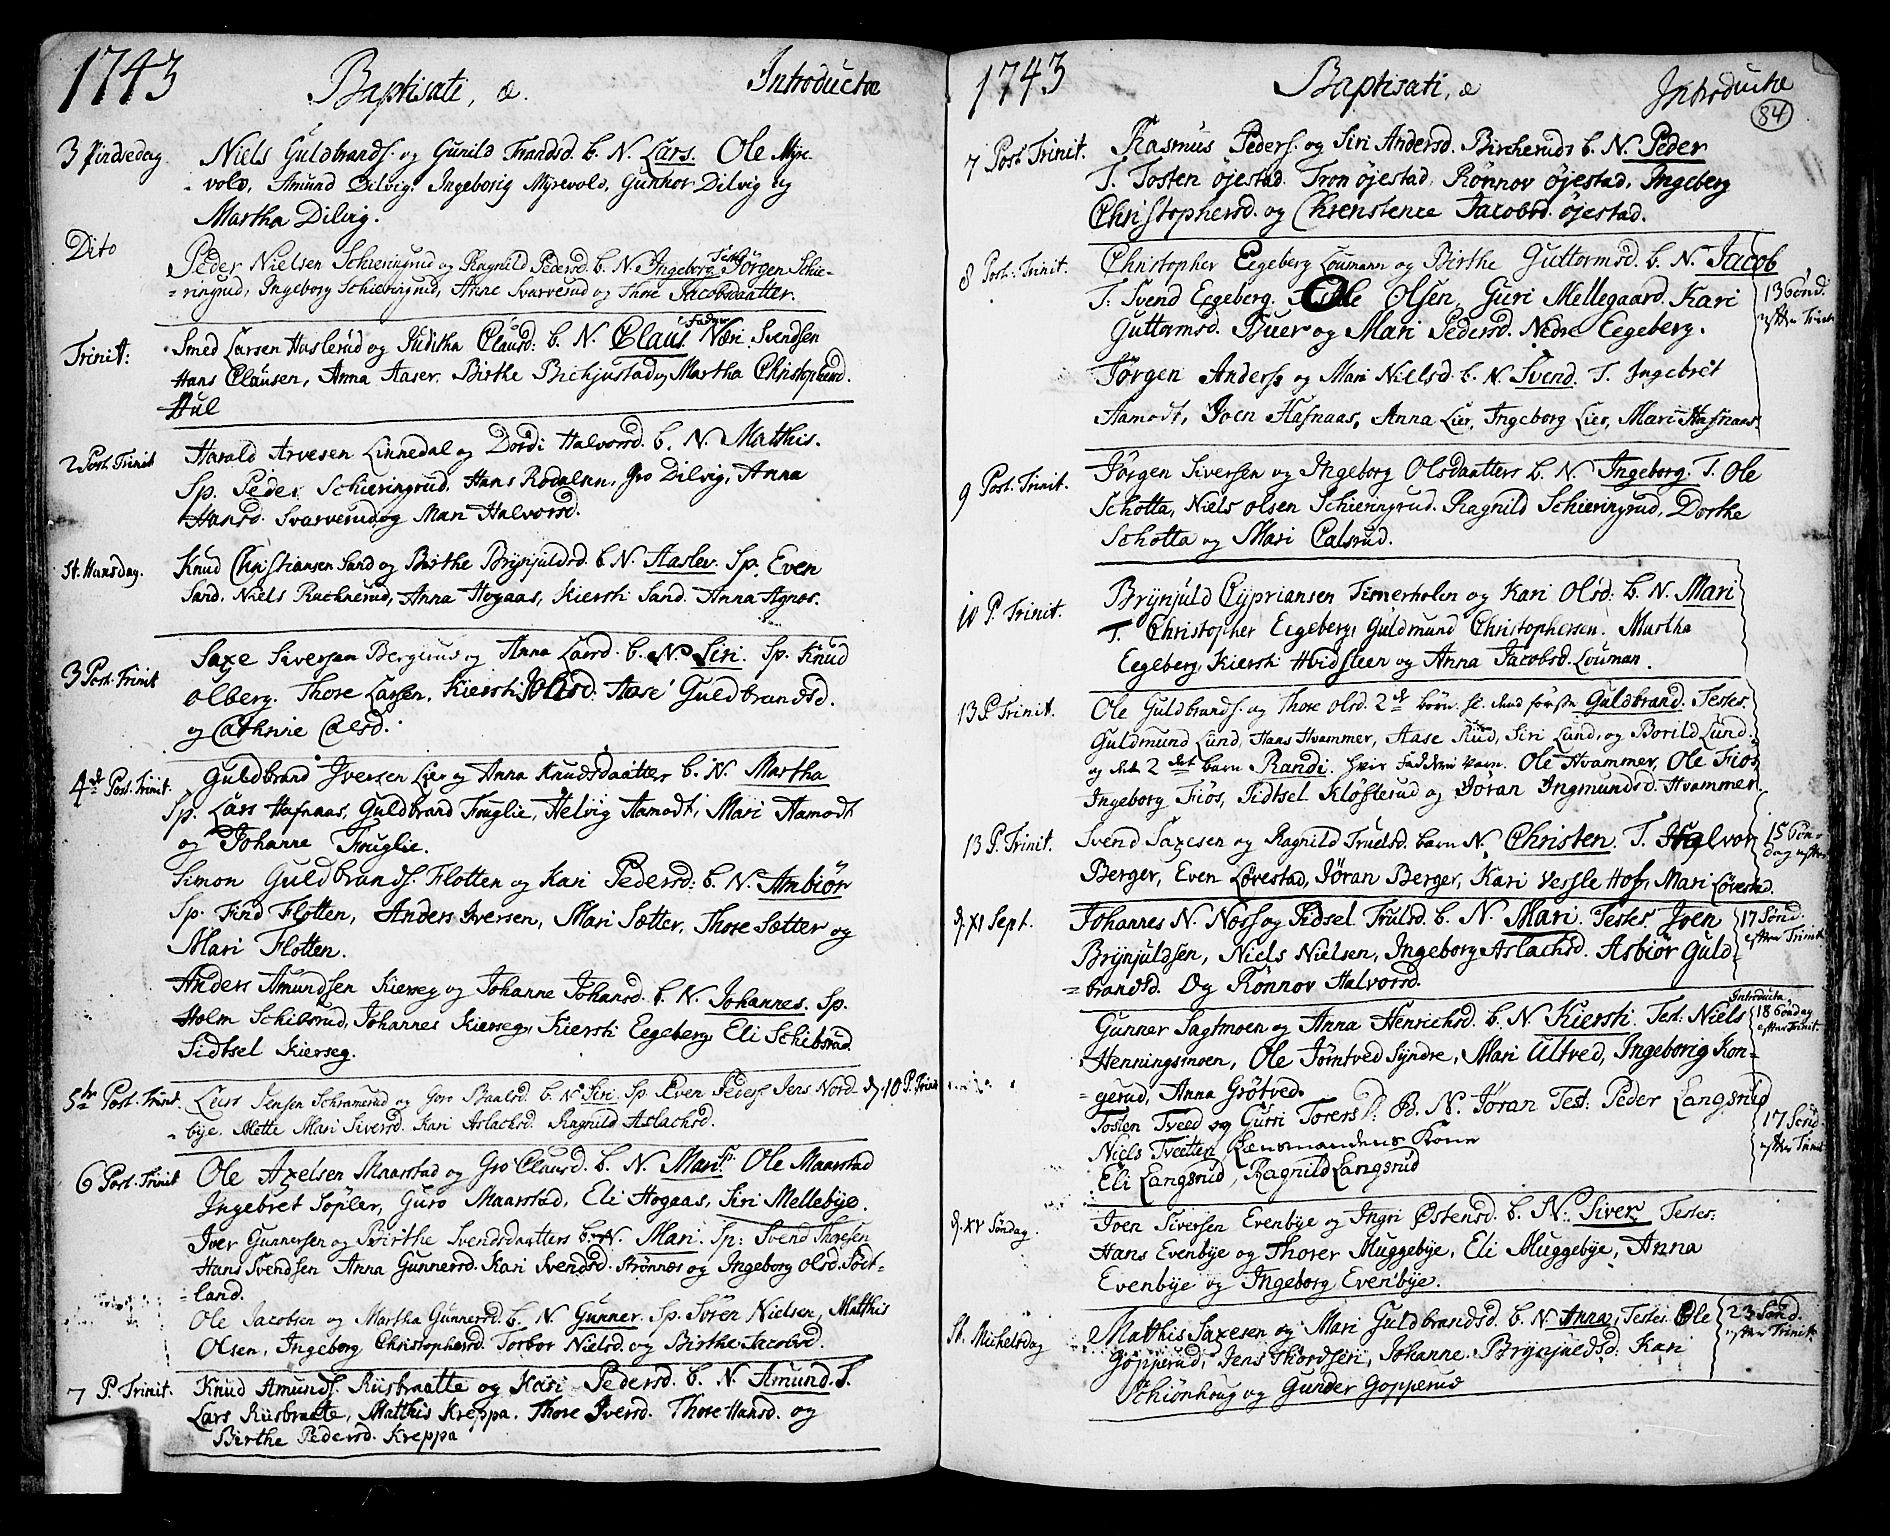 1743 Baptisati, æ. Introductæ
3 Pindsedag Niels Guldbrands. og Gunild Frandsd. b. N. Lars. Ole Myr-
volv, Amund Dilvig, Ingeborig Myrevold, Gunhor Dilvig og
Martha Dilvig.
Dito Peder Nielsen Schieringrud og Ragnild Pedersd. b. N. Ingeborg Test. Jörgen Schie-
ringrud, Ingeborg Schieringrud, Anne Svarverud og Thore Jacobsdaatter.
Trinit: Smed Larsen Huslerud og Juditha Clausd: b. N. Claus. Faddere Næri Svendsen
Hans Clausen, Anna Aaser, Birthe Bichjustad og Martha Christophersd.
Hul
2 Post. Trinit Harald Arvesen Linnedal og Dordi Halvorsd. b. N. Matthis.
Sp. Peder Schieringrud. Hans Rodalsen, Gro Dilvig, Anna
Hansd. Svarverud og Mari Halvorsd.
St. Hansdag. Knud Christiansen Sand og Birthe Brynjulds. b. N. Aaslev. Sp. Even
Sand. Niels Ruchnerud, Anna Hogaas, Kiersti Sand. Anna Agnes.
3 Post. Trinit Saxe Siversen Bergerud og Anna Larsd. b. N. Siri. Sp. Knud
Olberg. Thore Larsen, Kiersti Johsd. Aase Guldbrandsd.
og Cathrine Calsd.
4de Post. Trinit. Guldbrand Iversen Lier og Anna Knudsdaatter b. N. Martha
Sp. Lars Hafnaas, Guldbrand Fruglie, Helvig Aamodt, Mari Aamodt
og Johanne Fruglie.
Simon Guldbrands. Flotten og Kari Pedersd: b. N. Ambiör
Sp. Find Flotten, Anders Iversen, Mari Sætter, Thore Sætter og
Mari Flotten.
Anders Amundsen Kierseg og Johanne Johansd. b. N. Johannes. Sp.
Holm Schibsrud, Johannes Kierseg, Kiersti Eegeberg, Eli Schibsrud
Sidtsel Kierseg.
5te Post. Trinit. Lars Jensen Schramerud og Goro Paalsd. b. N. Siri. Sp. Even Peders. Jens Nord- d. 10 P. Trinit
bije. Mette Mari Siversd. Kari Aslachsd. Ragnild Aslachsd.
6 Post. Trinit Ole Axelsen Maarstad og Gro Clausd. b. N. Mari. Sp. Ole Maarstad
Ingebret Sopler, Guro Maarstad, Eli Hogaas, Siri Mellebye.
Iver Gunnersen og Birthe Svendsdaatters b. N. Mari. Sp: Svend Thoresen
Hans Svendsen Anna Gunnersd. Kari Svendsd. Strønnes og Ingeborg Olsd. Södt-
land.
Ole Jacobsen og Martha Gunnersd. b. N. Gunner. Sp. Sören Nielsen, Matthis
Olsen, Ingeborg Christophersd. Torbor Nielsd. og Birthe Jacobsd.
7 P. Trinit. Knud Amunds. Riisbraatte og Kari Pedersd. b. N. Amund. T.
Lars Riisbraate, Matthis Kreppa. Thore Iversd. Thore Hansd. og
Birthe Pedersd. Kreppa
1743 Baptisati, æ Introductæ
84
7 Post Trinit. Rasmus Peders. og Siri Andersd. Bircheruds b. N. Peder
T. Tosten Öjestad. Tron Öjestad, Rönnov Öjestad, Ingeberg
Christophersd. og Chrenstence Jacobsd. Öjestad.
8 Post. Trinit. Christopher Eegeberg Loumann og Birthe Guttormsd. b. N. Jacob
T: Svend Eegeberg. Ole Olsen, Guri Mellegaard. Kari 13 Sönd.
Guttormsd. Buer og Mari Pedersd. Nedre Eegeberg. efter Trinit
Jörgen Anders. og Mari Nielsd. b. N. Svend. T. Ingebret
Aamodt, Joen Hafnaas, Anna Lier, Ingeborg Lier, Mari Hafnaas
9 Post. Trinit. Jörgen Siversen og Ingeborg Olsdaatters b. N. Ingeborg. T. Ole
Schotta, Niels Olsen Schieringrud. Ragnild Schieringrud, Dorthe
Schotta og Mari Calsrud.
10 P. Trinit. Brynjuld Cyprianson Timerholen og Kari Olsd: b. N. Mari
T. Christopher Eegeberg, Guldmund Christophersen. Martha
Eegeberg, Kiersti Hvidsteen og Anna Jacobsd. Louman.
13 P Trinit. Ole Guldbrands. og Thore Olsd. 2de börn. sc. dend förste Guldbrand. Testes.
Guldmund Lund, Hans Hvammer, Aase Rud, Siri Lund, og Borild Lund.
og det 2det barn Randi. hvis Faddere vare. Ole Hvammer, Ole Fiös
Ingeborg Fiös, Sidtsel Klösterud og Jöran Ingmundsd. Hvammer.
13 P. Trinit. Svend Saxesen og Ragnild Truelsd. barn N. Christen. T. Halvor 15 Sön-
Berger, Even Lövestad, Jöran Berger, Kari Vessle Hof, Mari Lövestad. dag efter
d. XI Sept. Johannes N. Næss og Sidsel Trulsd. b. N. Mari. Testes. Joen 17 Sönd.
Brynjuldsen, Niels Nielsen, Ingeborg Aslachsd. Asbiör Guld- efter Trinit
brandsd. Og Rönnov Halvorsd.
Gunner Sagmoen og Anna Henrichsd. b. N. Kiersti. Test. Niels Introducta 18 Söndag
Henningsmoen, Ole Törntved Syndre, Mari Ultved, Ingeborig Kon- efter Trinit.
gerud, Anna Grötved.
Tosten Tveed og Guri Torersd. B. N. Joran Test: Peder Langsrud
Niels Tveetten Lænsmandens Kone 17 Sönd
Eli Langsrud, Ragnild Langsrud efter Trinit
d. XV Söndag. Joen Siversen Evenbije og Ingri Østensd. b. N: Siver Testes:
Hans Evenbije og Thorer Muggebije, Eli Muggebije, Anna
Evenbije og Ingeborg Evenbije.
St. Michelsdag Matthis Saxesen og Mari Guldbrandsd. b. N. Anna, Testes. Ole 23 Sönd.
Gopperud, Jens Thordsen, Johanne Brynjuldsd. Kari efter Trinit
Schiönhoug og Gunder Gopperud